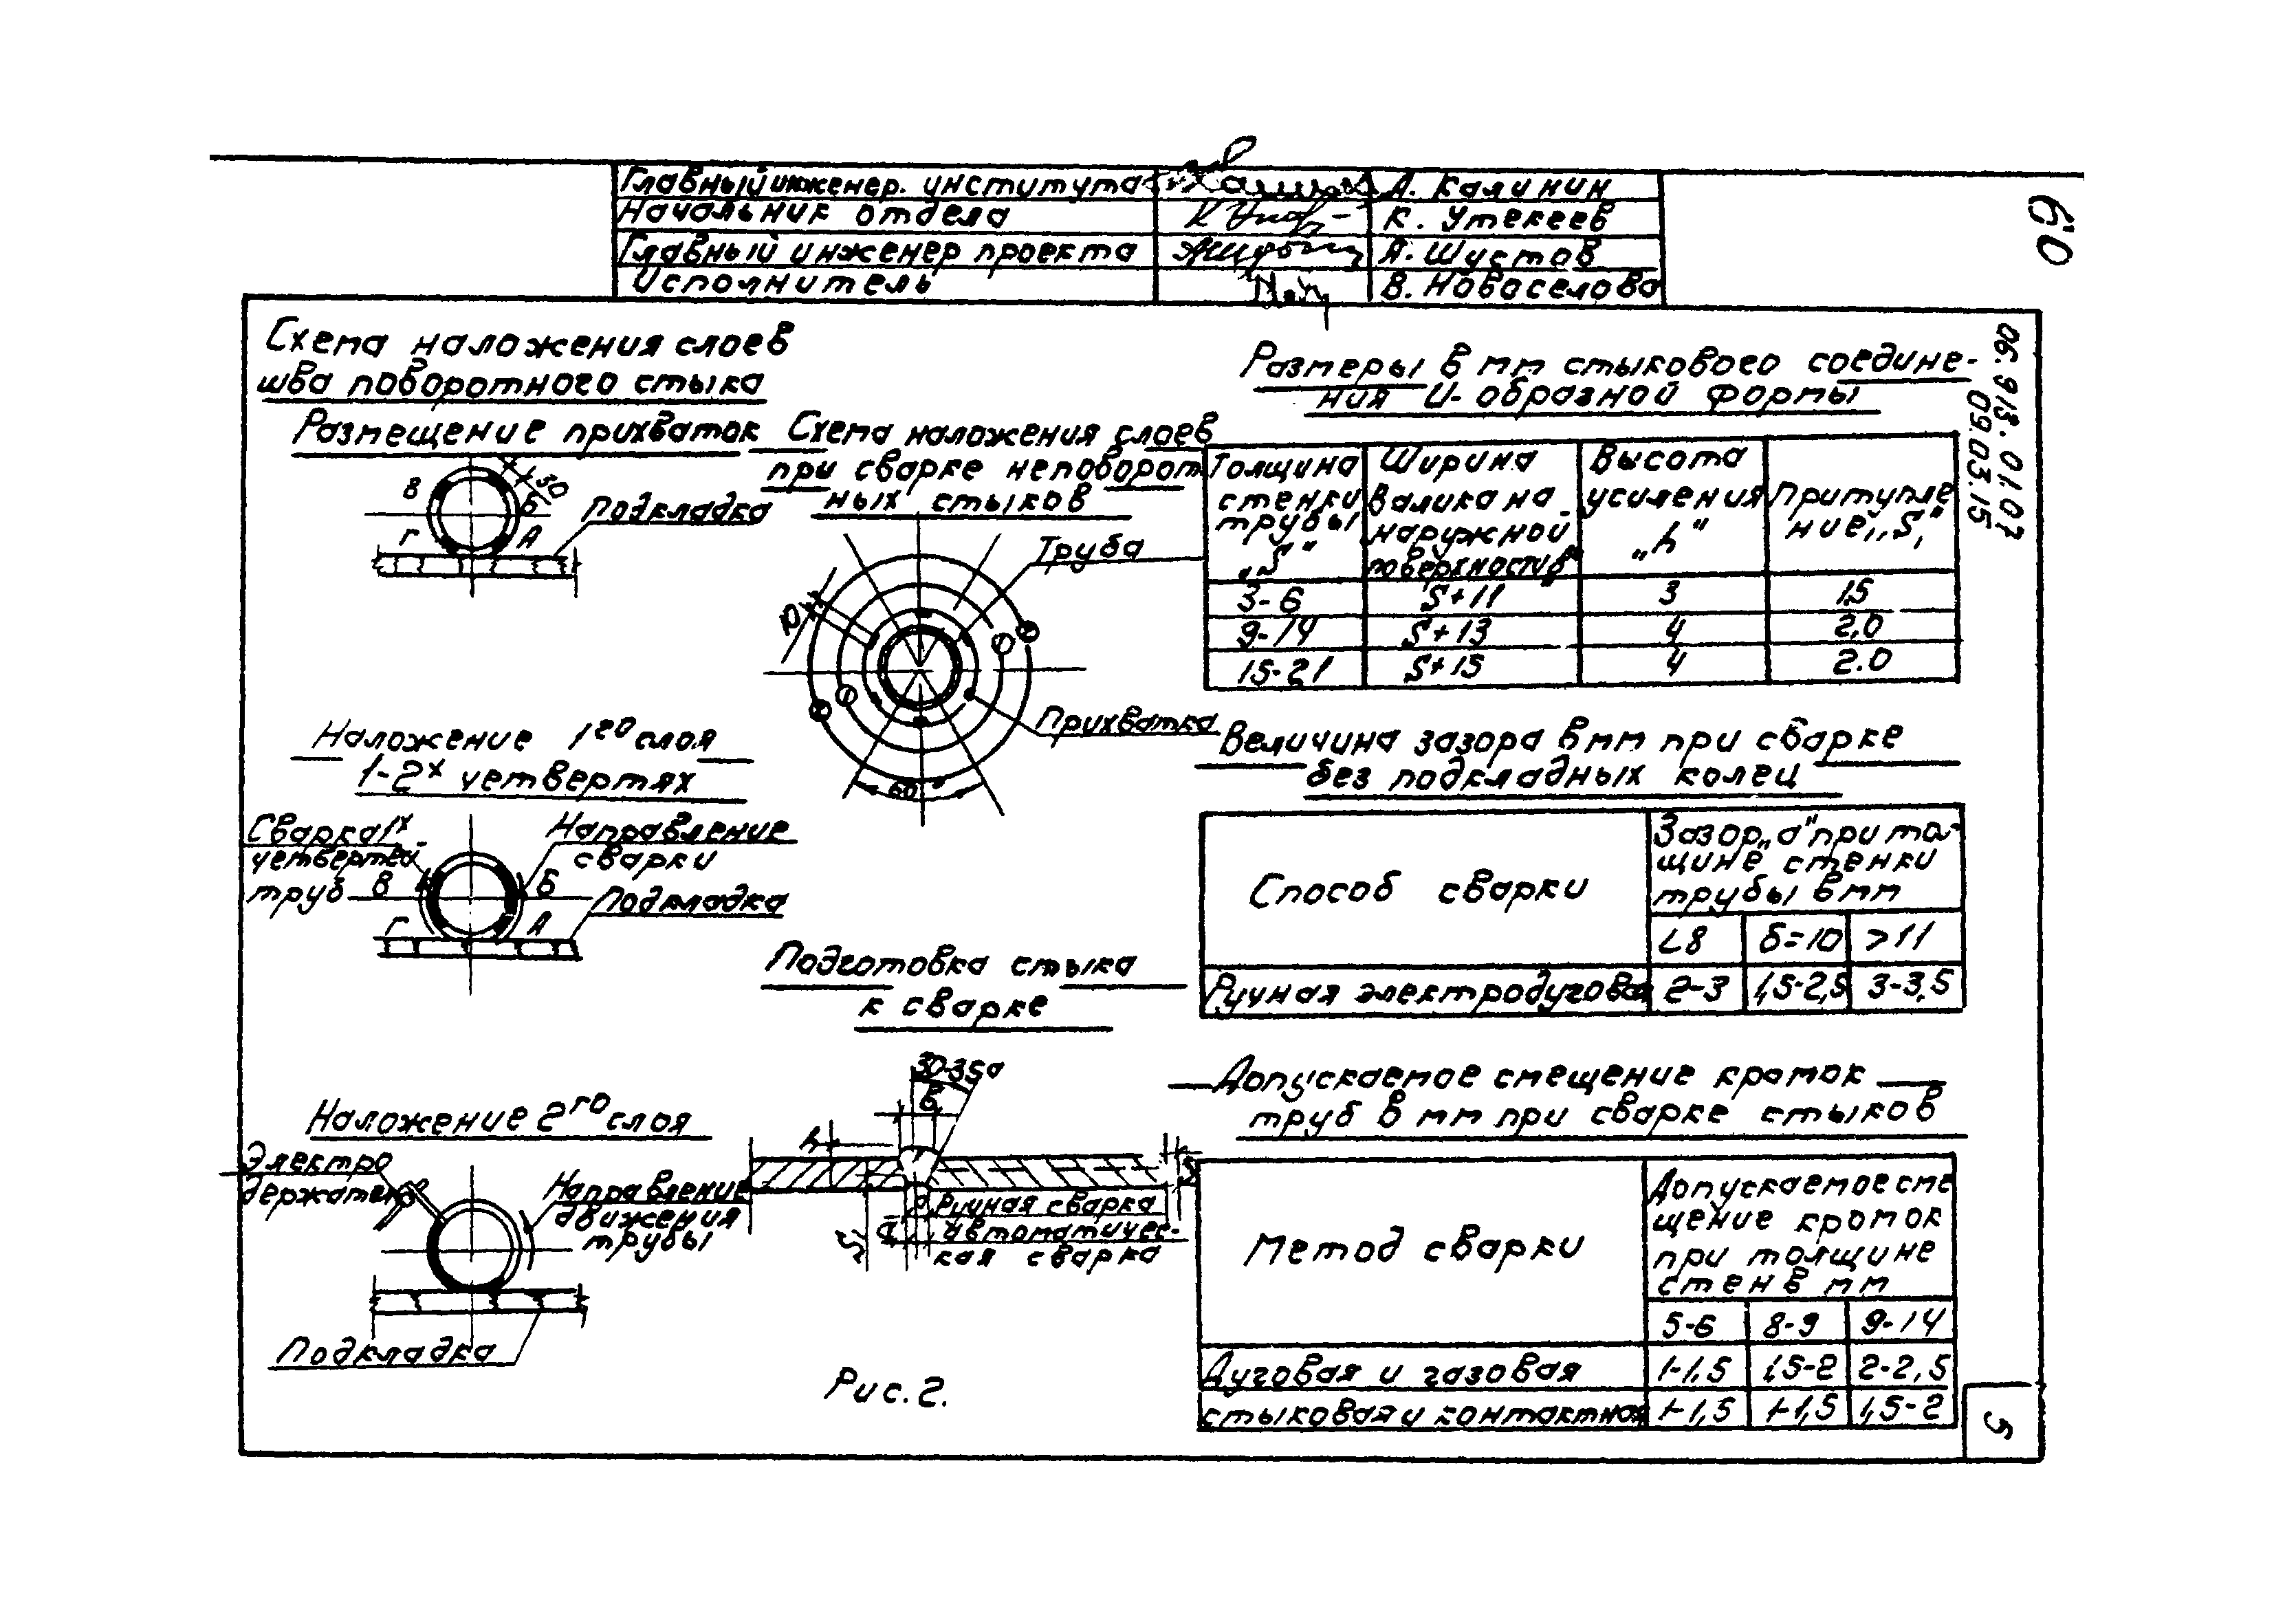 Главный инженер. института А. Калинин
Начальник отдела К. Утекеев
Главный инженер проекта А. Шустов
Исполнитель В. Новоселова
60
06.913.01.07
09.03.15
Схема наложения слоев
шва поворотного стыка
Размещение прихваток
В
50
Б
Подкладка
Г
А
Наложение 1го слоя
1-2х четвертях
Сварка 1х
четвертей
труб
Направление
сварки
В
Б
Подкладка
Г
А
Наложение 2го слоя
Электро
держатель
Направление
движения
трубы
Подкладка
Схема наложения слоев
при сварке неповорот
ных стыков
Труба
Прихватка
60
Подготовка стыка
к сварке
30-35°
в
h
Ручная сварка
Автоматичес-
кая сварка
а
S
Рис. 2.
Размеры в мм стыкового соедине-
ния U-образной формы
Толщина
стенки
трубы
„S“
Ширина
валика на
наружной
поверхности „в“
Высота
усиления
„h“
Притупле
ние „S₁“
3-6 S+11 3 1,5
9-14 S+13 4 2,0
15-21 S+15 4 2.0
Величина зазора в мм при сварке
без подкладных колец
Способ сварки
Зазор „а“ при тол-
щине стенки
трубы в мм
<8 δ=10 >11
Ручная электродуговая 2-3 1,5-2,5 3-3,5
Допускаемое смещение кромок
труб в мм при сварке стыков
Метод сварки
Допускаемое сме
щение кромок
при толщине
стен в мм
5-6 8-9 9-14
Дуговая и газовая 1-1,5 1,5-2 2-2,5
стыковая и контактная 1-1,5 1-1,5 1,5-2
5